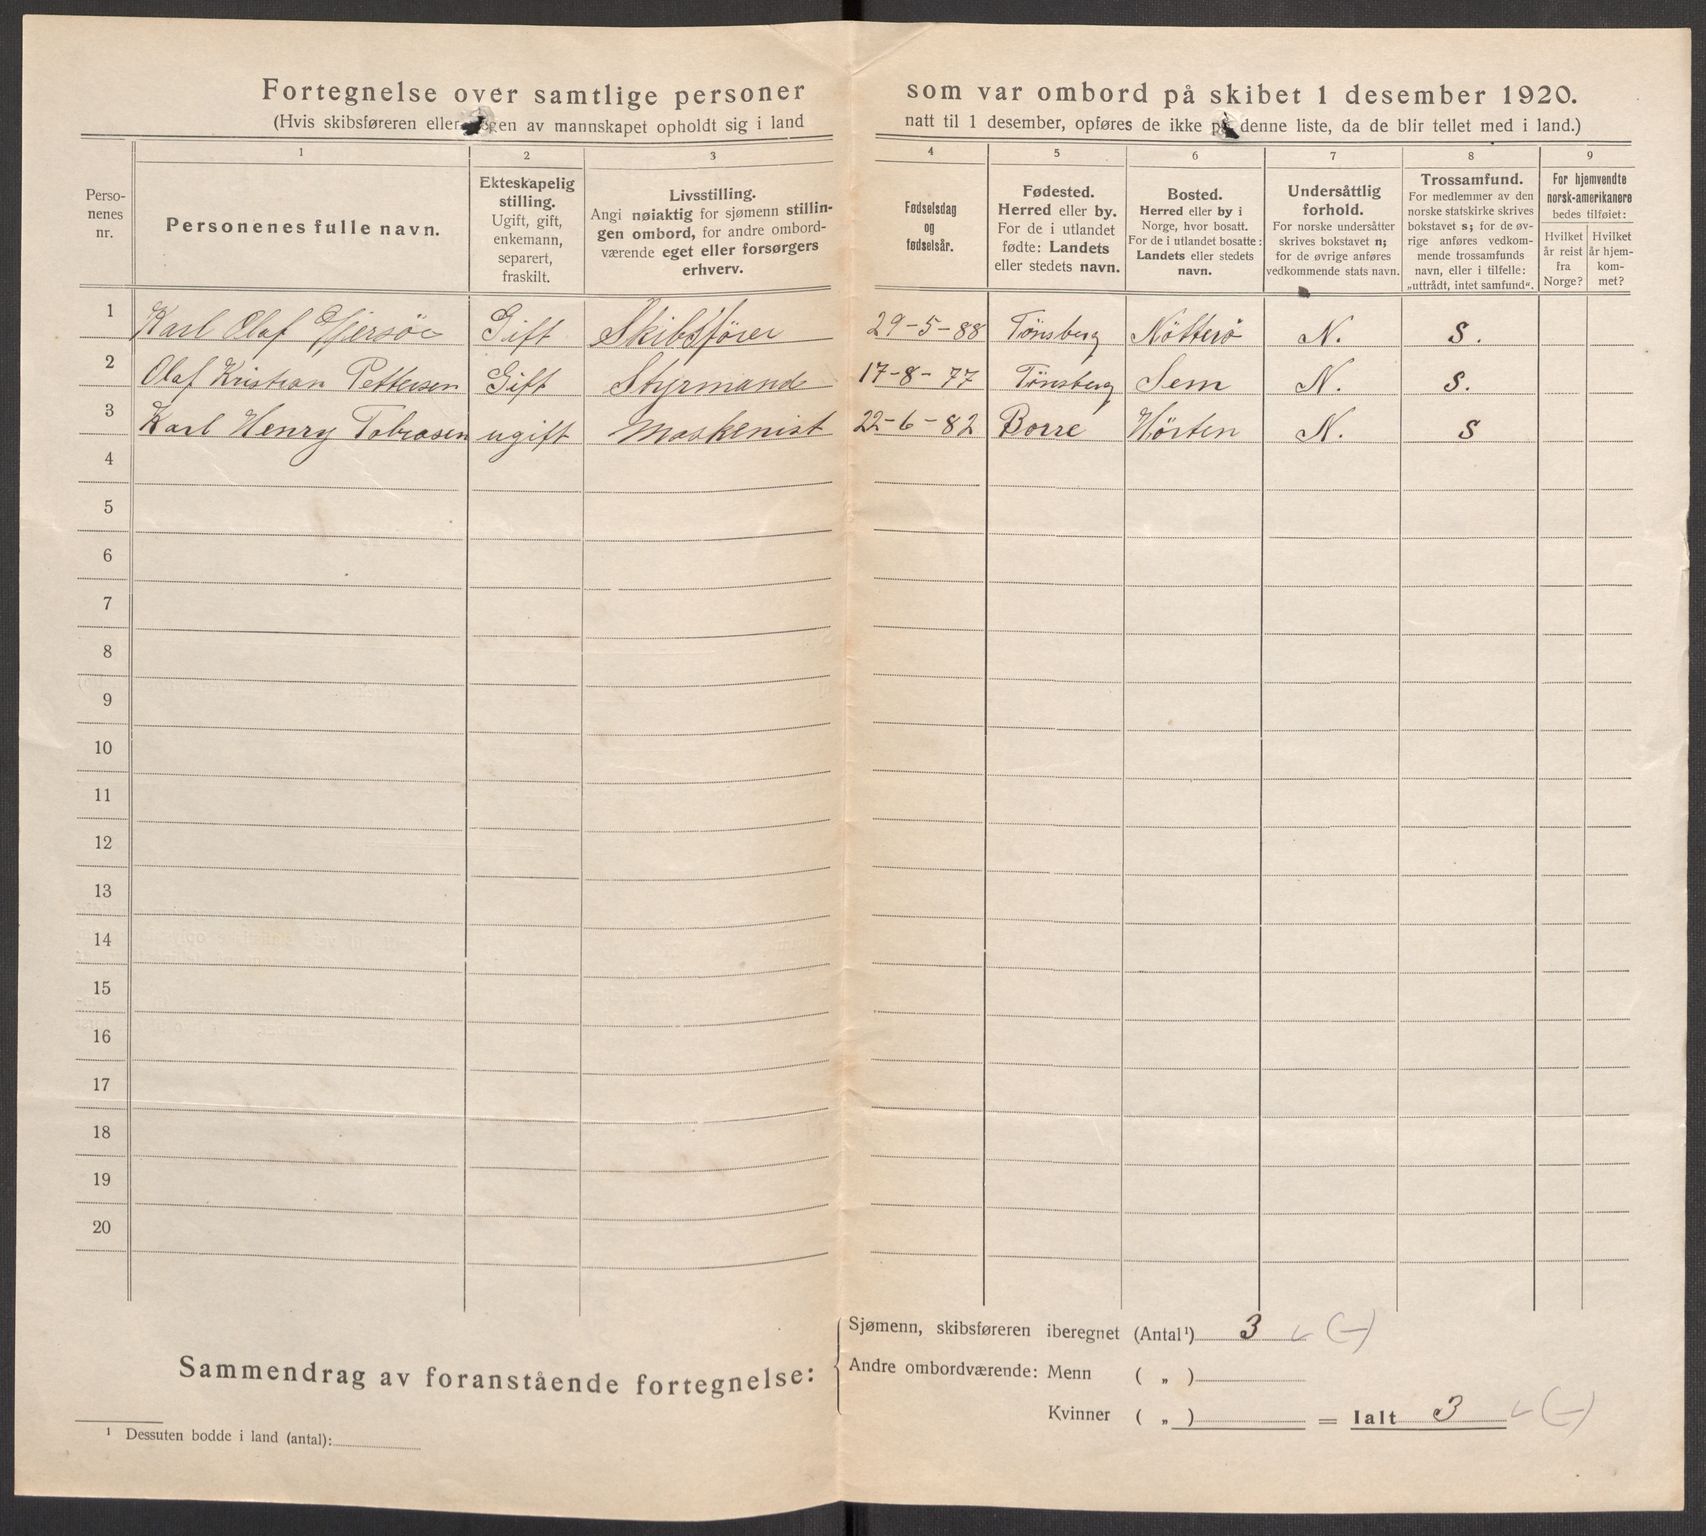 Fortegnelse over samtlige personer som var ombord på skibet 1 desember 1920.
(Hvis skibsføreren eller nogen av mannskapet opholdt sig i land natt til 1 desember, opføres de ikke på denne liste, da de blir tellet med i land.)
1 2 3 4 5 6 7 8 9
Perso-
nenes
nr.
Personenes fulle navn.
Ekteskapelig
stilling.
Ugift, gift,
enkemann,
separert,
fraskilt.
Livsstilling.
Angi nøiaktig for sjømenn stillin-
gen ombord, for andre ombord-
værende eget eller forsørgers
erhverv.
Fødselsdag
og
fødselsår.
Fødested.
Herred eller by.
For de i utlandet
fødte: Landets
eller stedets navn.
Bosted.
Herred eller by i
Norge, hvor bosatt.
For de i utlandet bosatte:
Landets eller stedets
navn.
Undersåttlig
forhold.
For norske undersåtter
skrives bokstavet n;
for de øvrige anføres
vedkommende stats navn.
Trossamfund.
For medlemmer av den
norske statskirke skrives
bokstavet s; for de øv-
rige anføres vedkom-
mende trossamfunds
navn, eller i tilfelle:
„uttrådt, intet samfund“.
For hjemvendte
norsk-amerikanere
bedes tilføiet:
Hvilket
år reist
fra
Norge?
Hvilket
år hjem-
kom-
met?
1 Karl Olaf Gjersöe Gift Skibsförer 29-5-88 Tönsberg Nötterö N. S.
2 Olaf Kristian Pettersen Gift Styrmand 17-8-77 Tönsberg Sem N. S.
3 Karl Henry Tobiasen ugift Maskenist 22-6-82 Borre Hörten N. S
4
5
6
7
8
9
10
11
12
13
14
15
16
17
18
19
20
Sammendrag av foranstående fortegnelse:
Sjømenn, skibsføreren iberegnet (Antal¹) 3 (—)
Andre ombordværende: Menn ( „ )
Kvinner ( „ ) = Ialt 3 (—)
¹ Dessuten bodde i land (antal):